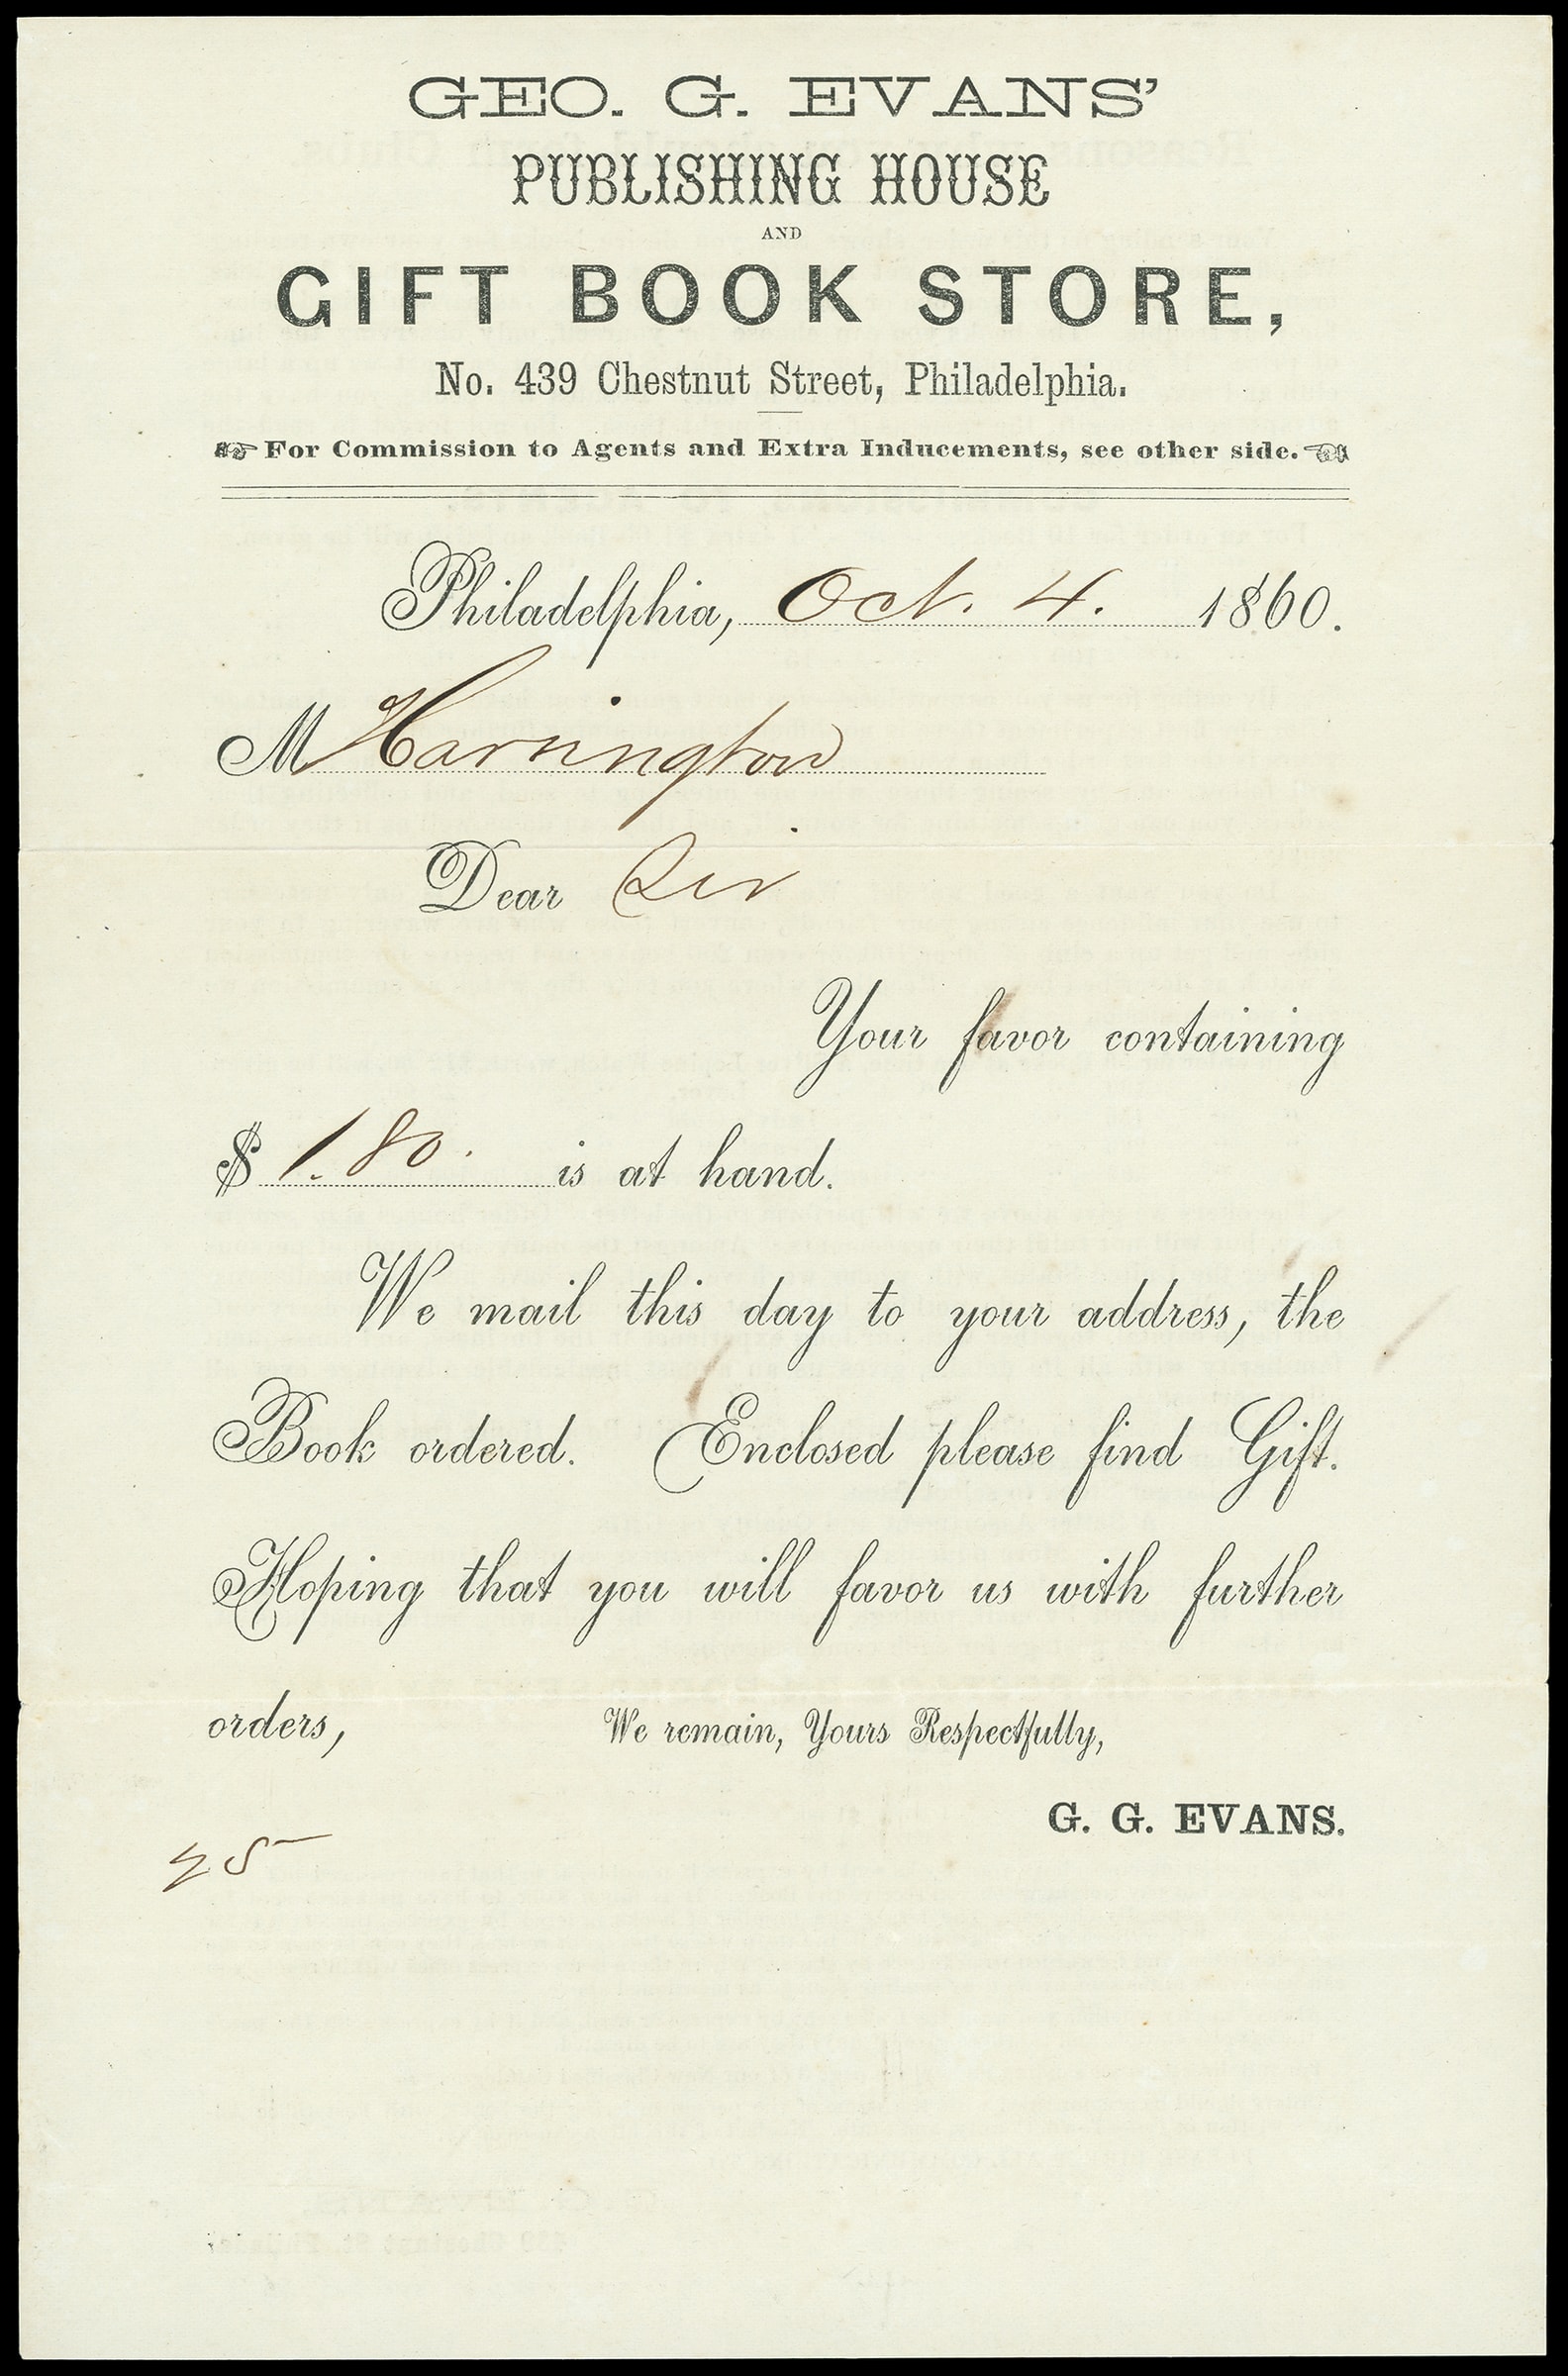 GEO. G. EVANS'
PUBLISHING HOUSE
AND
GIFT BOOK STORE,
No. 439 Chestnut Street, Philadelphia.
☞ For Commission to Agents and Extra Inducements, see other side. ☜
Philadelphia, Oct. 4. 1860.
M Harrington
Dear Sir
Your favor containing
$ 1.80. is at hand.
We mail this day to your address, the
Book ordered. Enclosed please find Gift.
Hoping that you will favor us with further
orders, We remain, Yours Respectfully,
G. G. EVANS.